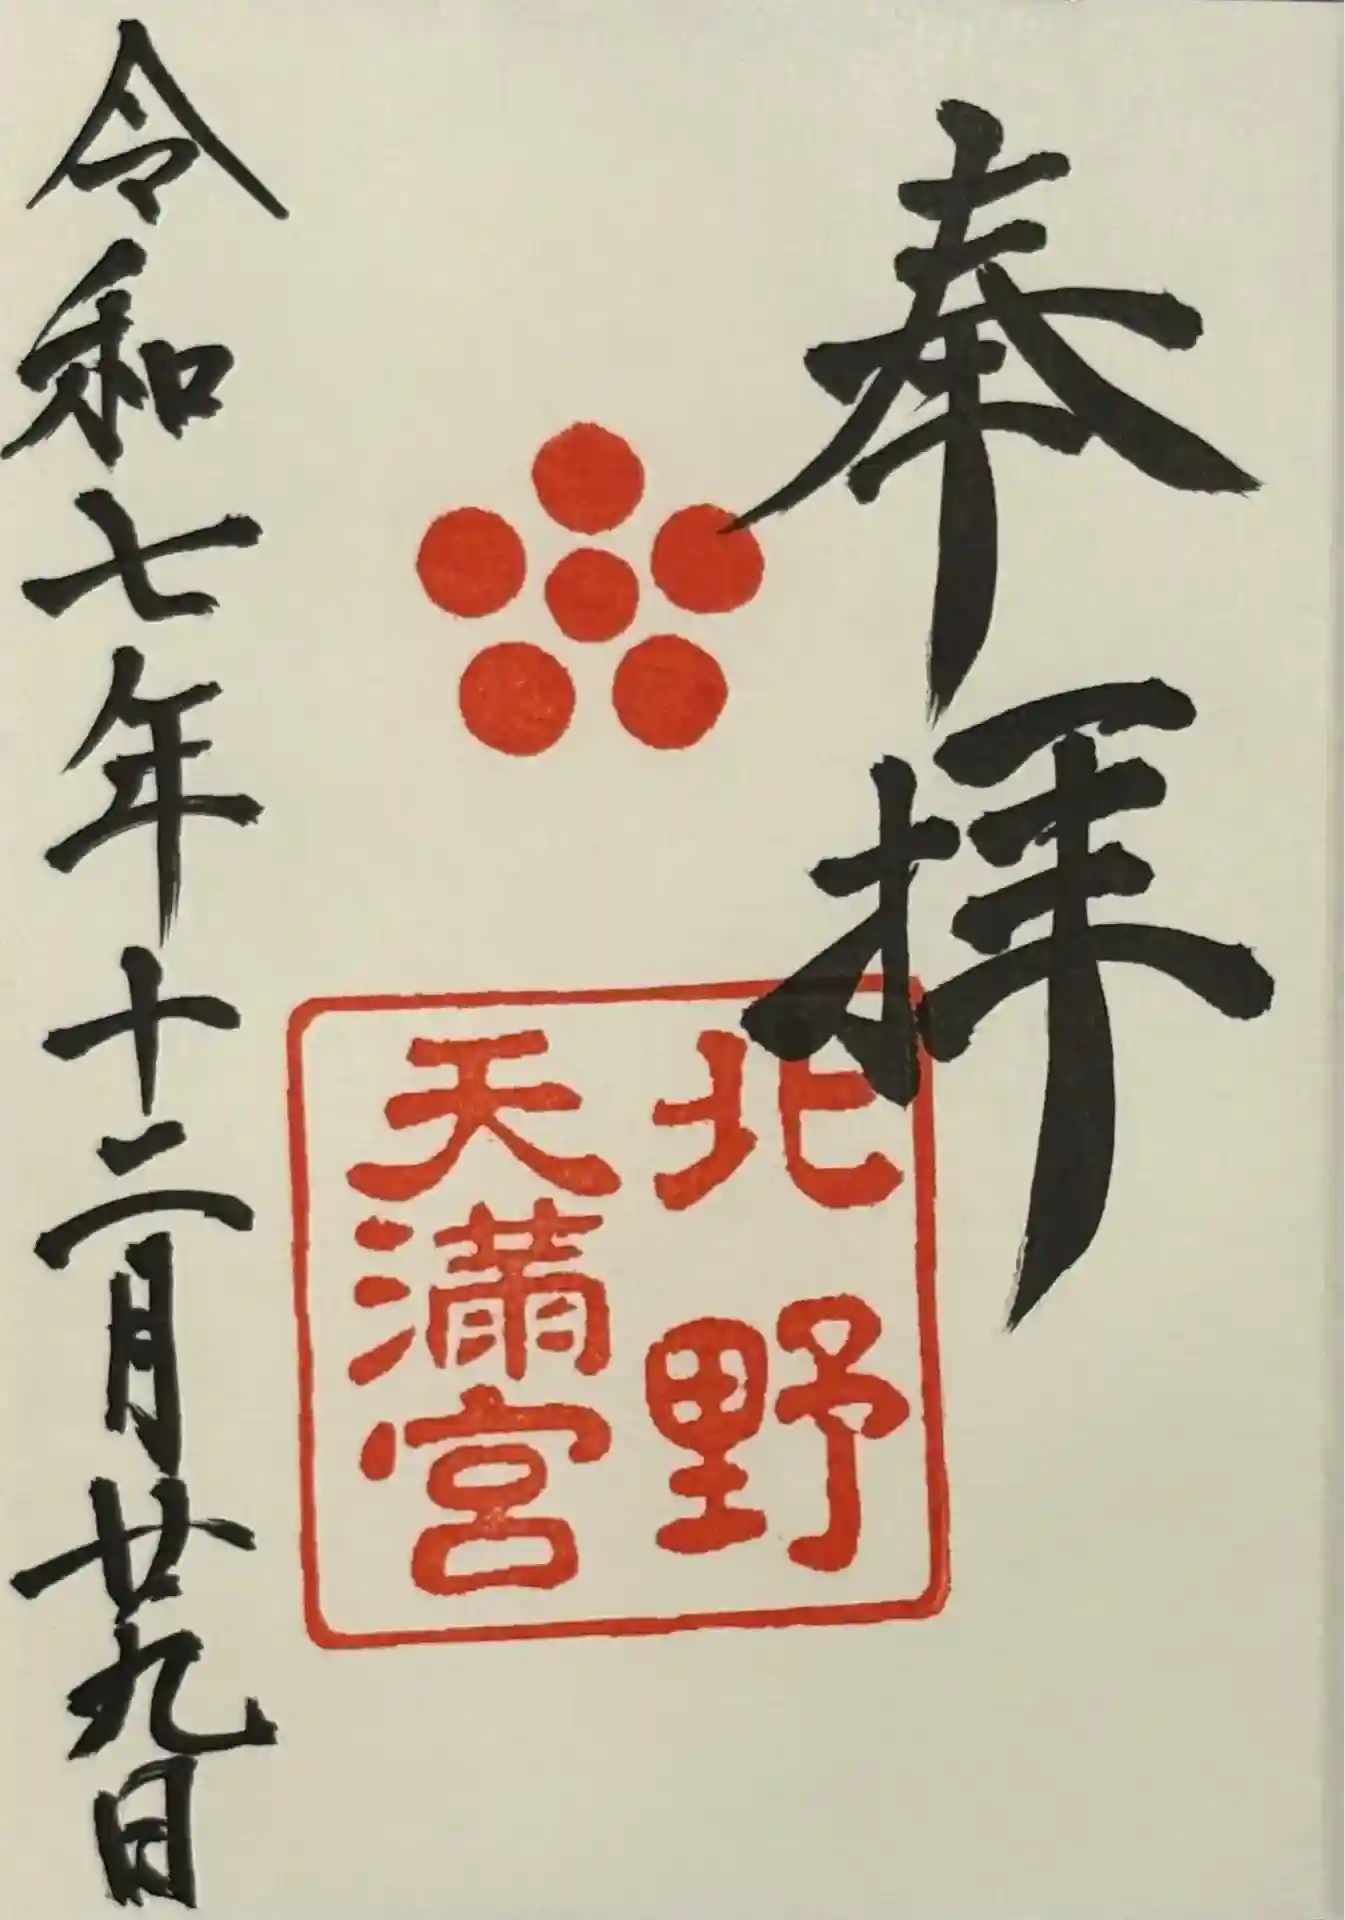 奉拝
北野
天満宮
令和七年十二月廿九日